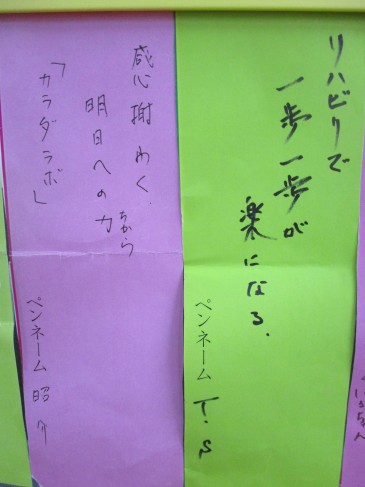 リハビリで
一歩一歩が
楽になる.
ペンネーム T.S
感謝わく
明日への力
ちから
「カラダラボ」
ペンネーム 昭介